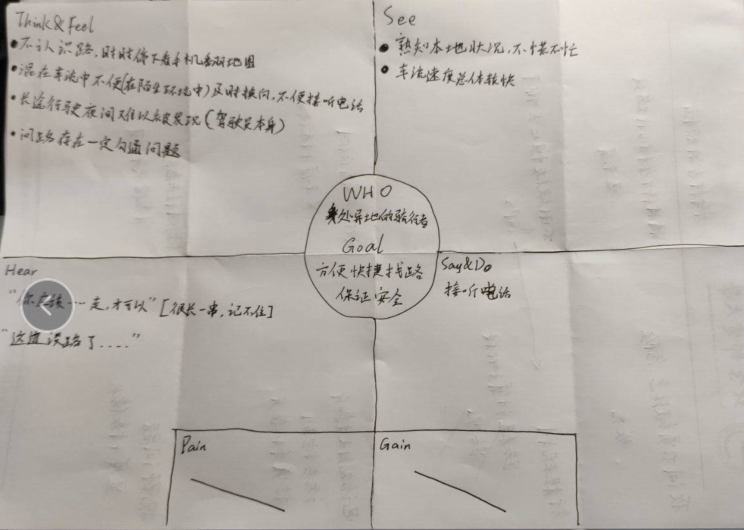 Think & Feel
• 不认识路,时时停下看手机查阅地图
• 混在车流中不便(在陌生环境中)及时换向,不便接听电话
• 长途行驶夜间难以被发现(驾驶员本身)
• 问路存在一定沟通问题
See
• 熟知本地状况,不慌不忙
• 车流速度总体较快
WHO
身处异地的骑行者
Goal
方便快捷找路
保证安全
Hear
走,才可以" [很长一串,记不住]
"这边误路了...."
Say&Do
接听电话
Pain
Gain